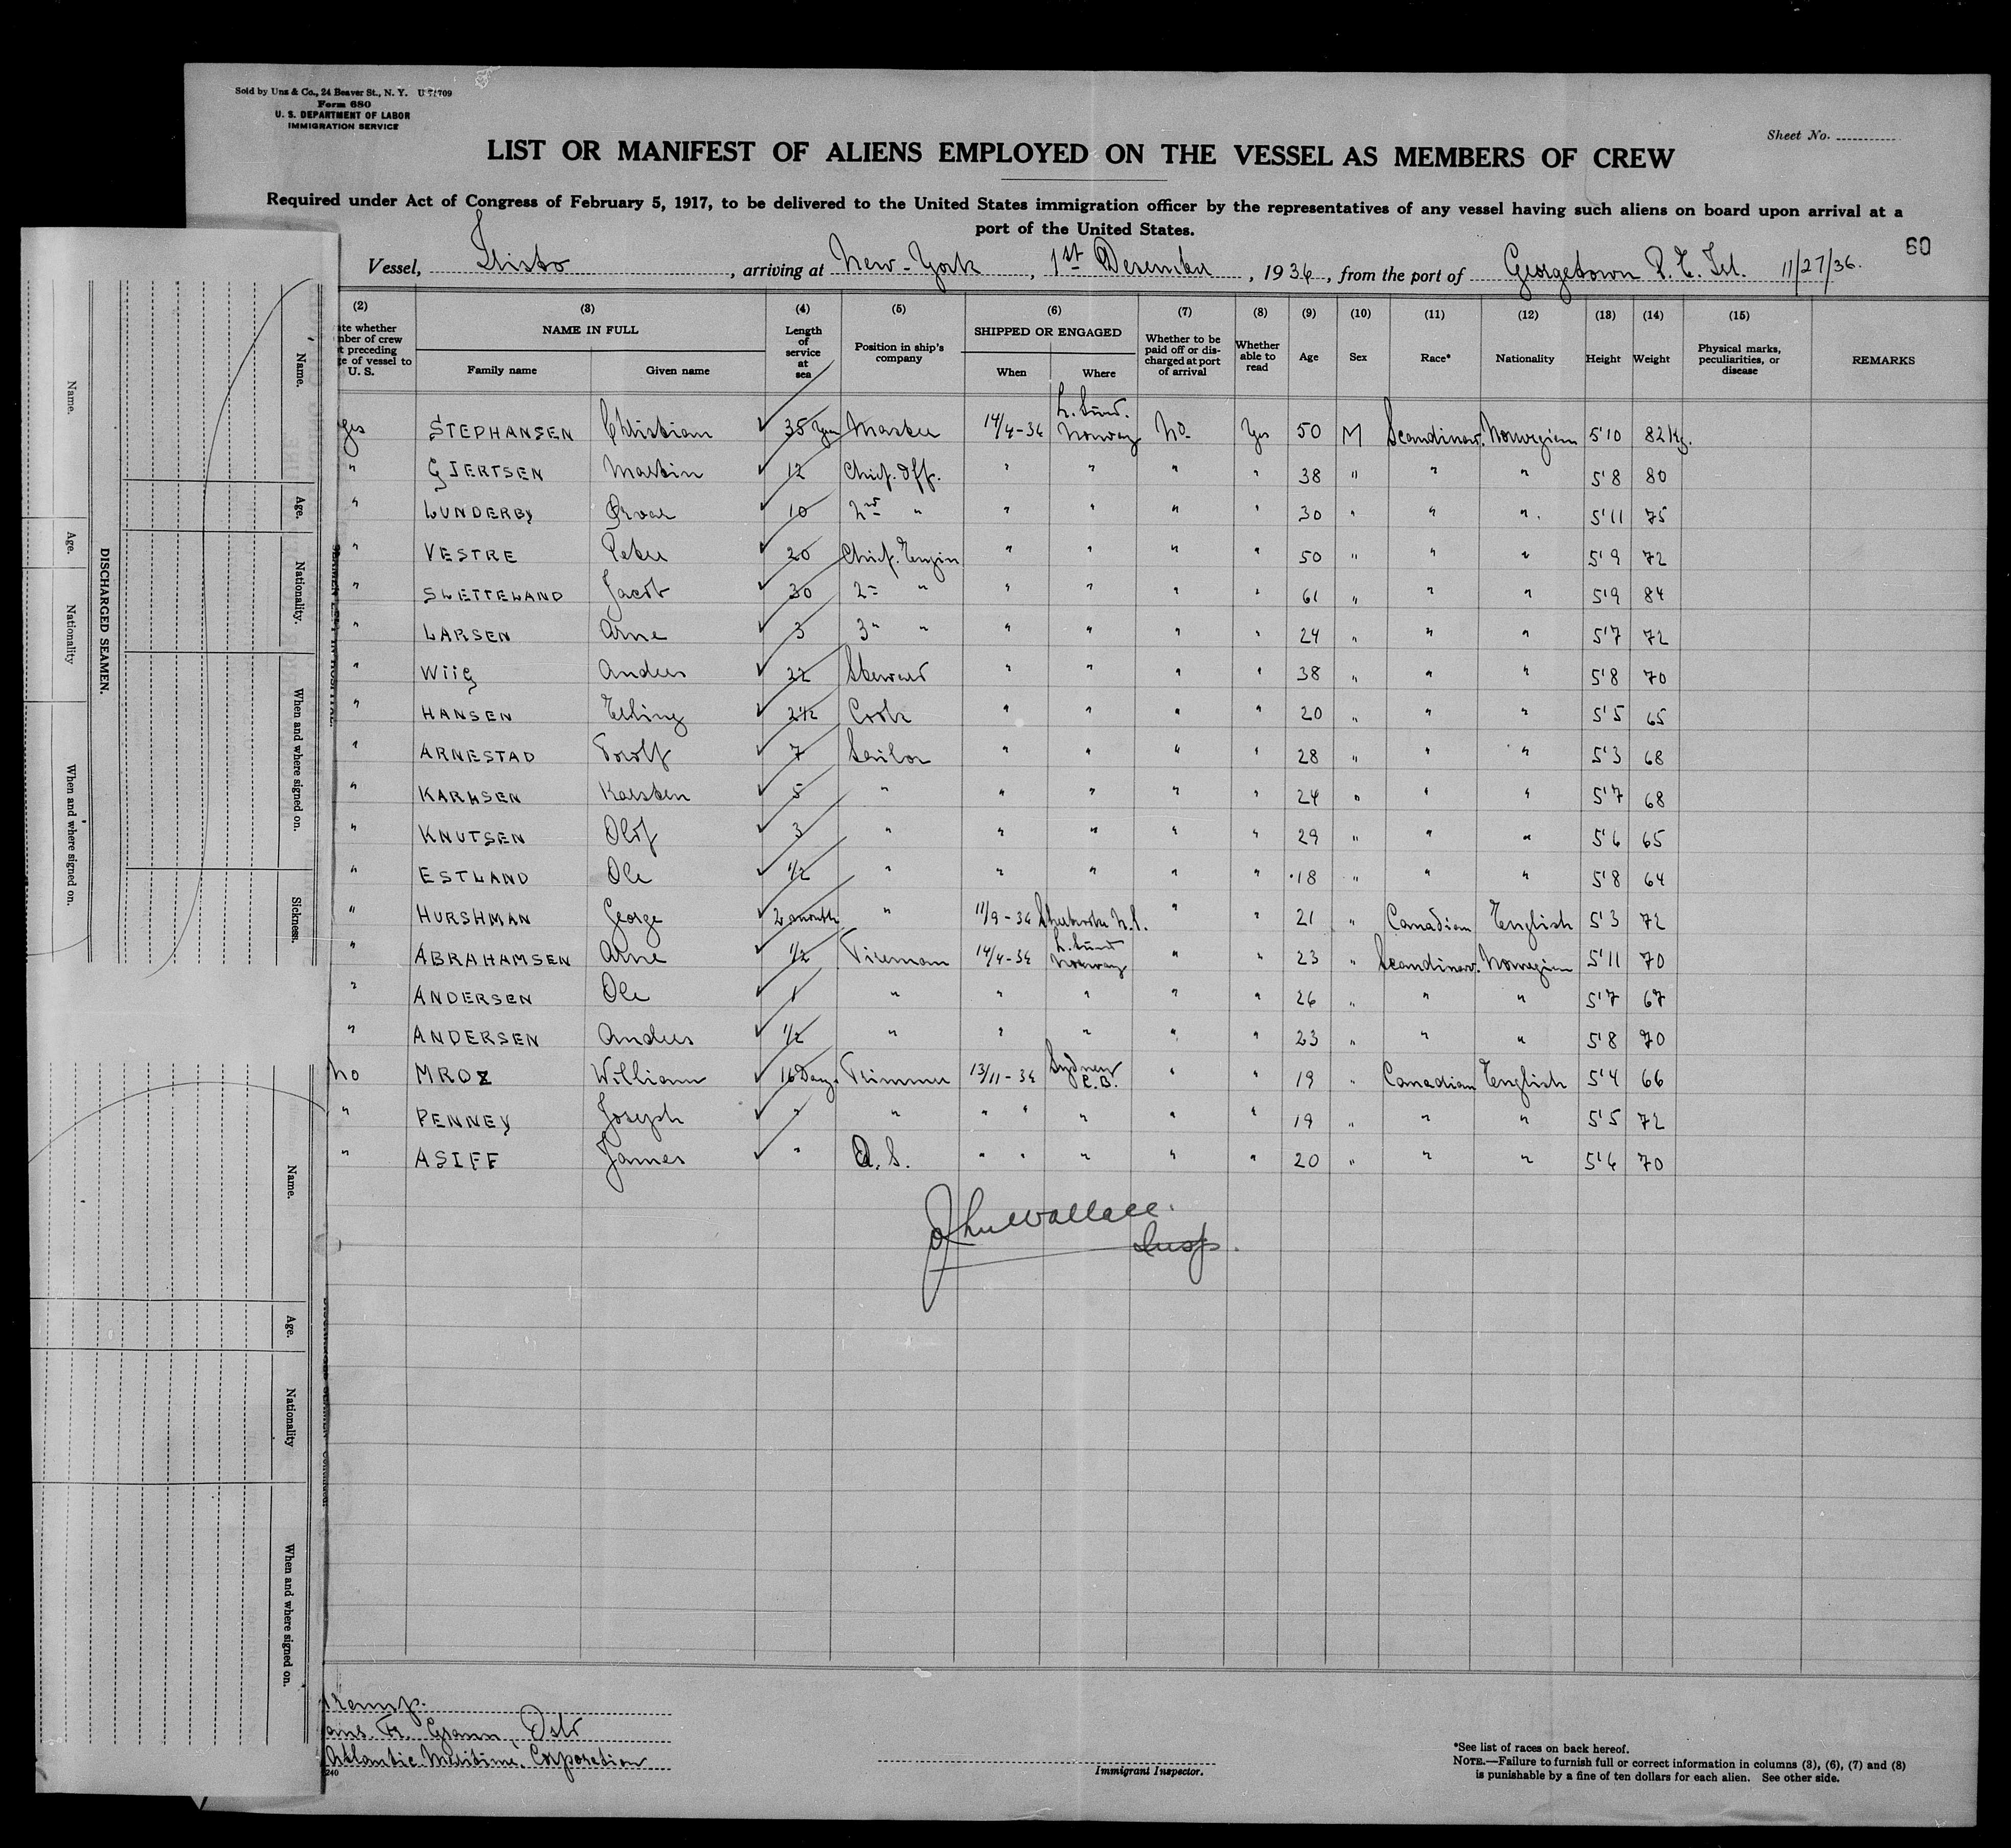 Sold by Unz & Co., 24 Beaver St., N. Y. U 51709
Form 680
U. S. DEPARTMENT OF LABOR
IMMIGRATION SERVICE
Sheet No.
LIST OR MANIFEST OF ALIENS EMPLOYED ON THE VESSEL AS MEMBERS OF CREW
Required under Act of Congress of February 5, 1917, to be delivered to the United States immigration officer by the representatives of any vessel having such aliens on board upon arrival at a
port of the United States.
60
Vessel, Listo, arriving at New-York, 1st Desember, 1936, from the port of Georgetown P. E. Isl. 11/27/36.
(2) (3) (4) (5) (6) (7) (8) (9) (10) (11) (12) (13) (14) (15)
ate whether
nber of crew
t preceding
ge of vessel to
U. S.
NAME IN FULL
Family name Given name
Length
of
service
at
sea
Position in ship's
company
SHIPPED OR ENGAGED
When Where
Whether to be
paid off or dis-
charged at port
of arrival
Whether
able to
read
Age
Sex
Race*
Nationality
Height
Weight
Physical marks,
peculiarities, or
disease
REMARKS
yes STEPHANSEN Christian 35 Master 14/4-36 L. Sund. Norway No. Yes 50 M Scandinav. Norwegian 5'10 82 kg.
" GJERTSEN Martin 12 Chief. Off. " " " " 38 " " " 5'8 80
" LUNDERBY Ørvar 10 2nd " " " " " 30 " " " 5'11 75
" VESTRE Peter 20 Chief. Engin " " " " 50 " " " 5'9 72
" SLETTELAND Jacob 30 2= " " " " " 61 " " " 5'9 84
" LARSEN Arne 3 3" " " " " " 24 " " " 5'7 72
" WIIG Anders 22 Steward " " " " 38 " " " 5'8 70
" HANSEN Elling 2 1/2 Cook " " " " 20 " " " 5'5 65
" ARNESTAD Torolf 7 Sailor " " " " 28 " " " 5'3 68
" KARLSEN Karsten 5 " " " " " 24 " " " 5'7 68
" KNUTSEN Olof 3 " " " " " 29 " " " 5'6 65
" ESTLAND Ole 1/2 " " " " " 18 " " " 5'8 64
" HURSHMAN George 2 month " 11/9-36 Sherbrooke N.S. " " 21 " Canadian English 5'3 72
" ABRAHAMSEN Arne 1/2 Fireman 14/4-36 L. Sund Norway " " 23 " Scandinav. Norwegian 5'11 70
" ANDERSEN Ole 1 " " " " " 26 " " " 5'7 67
" ANDERSEN Anders 1/2 " " " " " 23 " " " 5'8 70
No MROZ William 16 Days Trimmer 13/11-36 Sydney C.B. " " 19 " Canadian English 5'4 66
" PENNEY Joseph " " " " " " " 19 " " " 5'5 72
" ASIFF James " O. S. " " " " " 20 " " " 5'6 70
John Wallace.
Insp.
DISCHARGED SEAMEN.
Name.
Age.
Nationality
When and where signed on.
Name.
Age.
Nationality.
When and where signed on.
Sickness.
Name.
Age.
Nationality
When and where signed on.
Tramp.
ans. Fr. Grann, Oslo
Atlantic Maritime Corporation
240
Immigrant Inspector.
*See list of races on back hereof.
NOTE.—Failure to furnish full or correct information in columns (3), (6), (7) and (8)
is punishable by a fine of ten dollars for each alien. See other side.